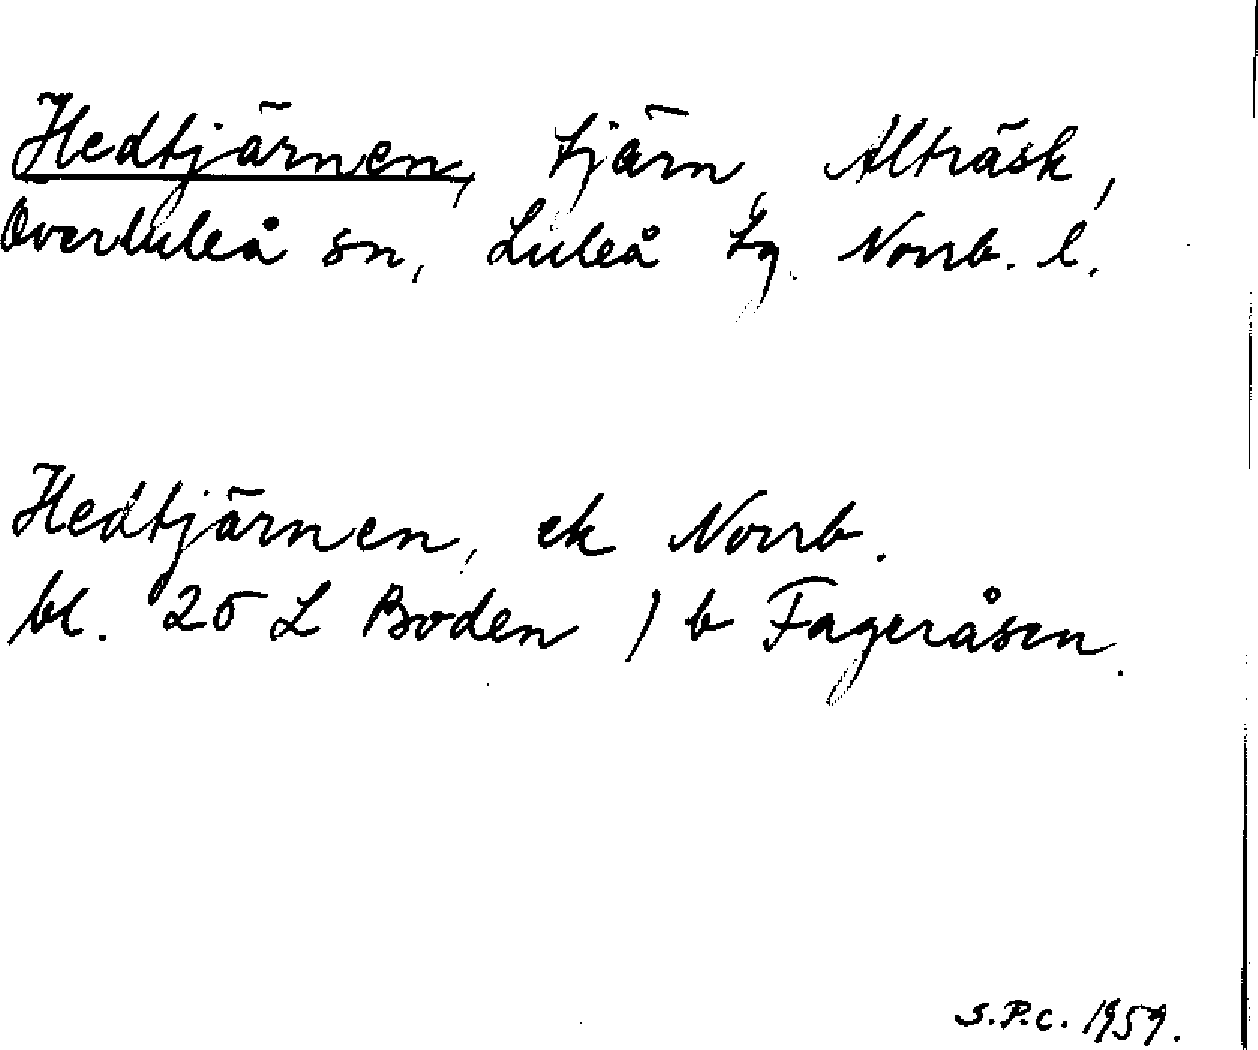 Hedtjärnen, tjärn, Alträsk,
Överluleå sn, Luleå tg. Norrb. l.
Hedtjärnen, ek Norrb.
bl. 25 L Boden ) b Fageråsen.
S.P.C. 1959.